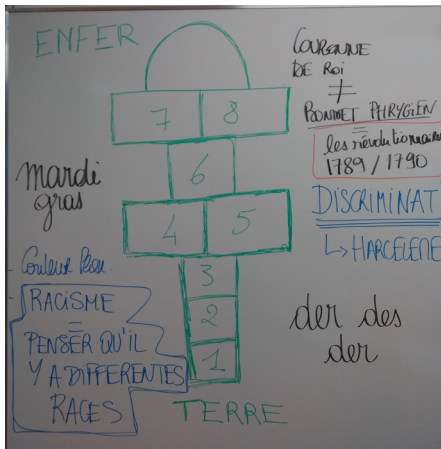 ENFER
COURONNE
DE ROI
≠
BONNET PHRYGIEN
=
les révolutionnaires
1789 / 1790
DISCRIMINAT
↳ HARCELEME
7 8
6
4 5
3
2
1
TERRE
mardi
gras
- Couleur Peau.
RACISME
=
PENSER QU'IL
Y A DIFFERENTES
RACES
der des
der